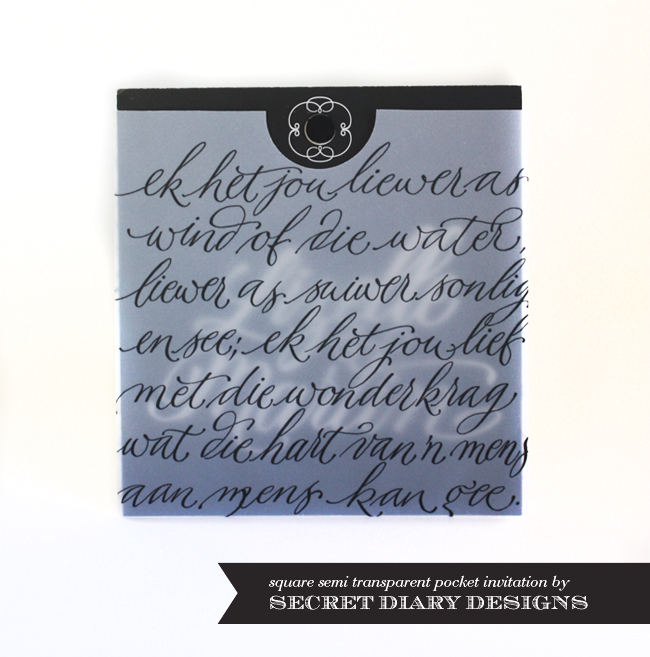 ek het jou liewer as
wind of die water,
liewer as suiwer sonlig
en see; ek het jou lief
met die wonderkrag
wat die hart van 'n mens
aan mens kan gee.
square semi transparent pocket invitation by
SECRET DIARY DESIGNS